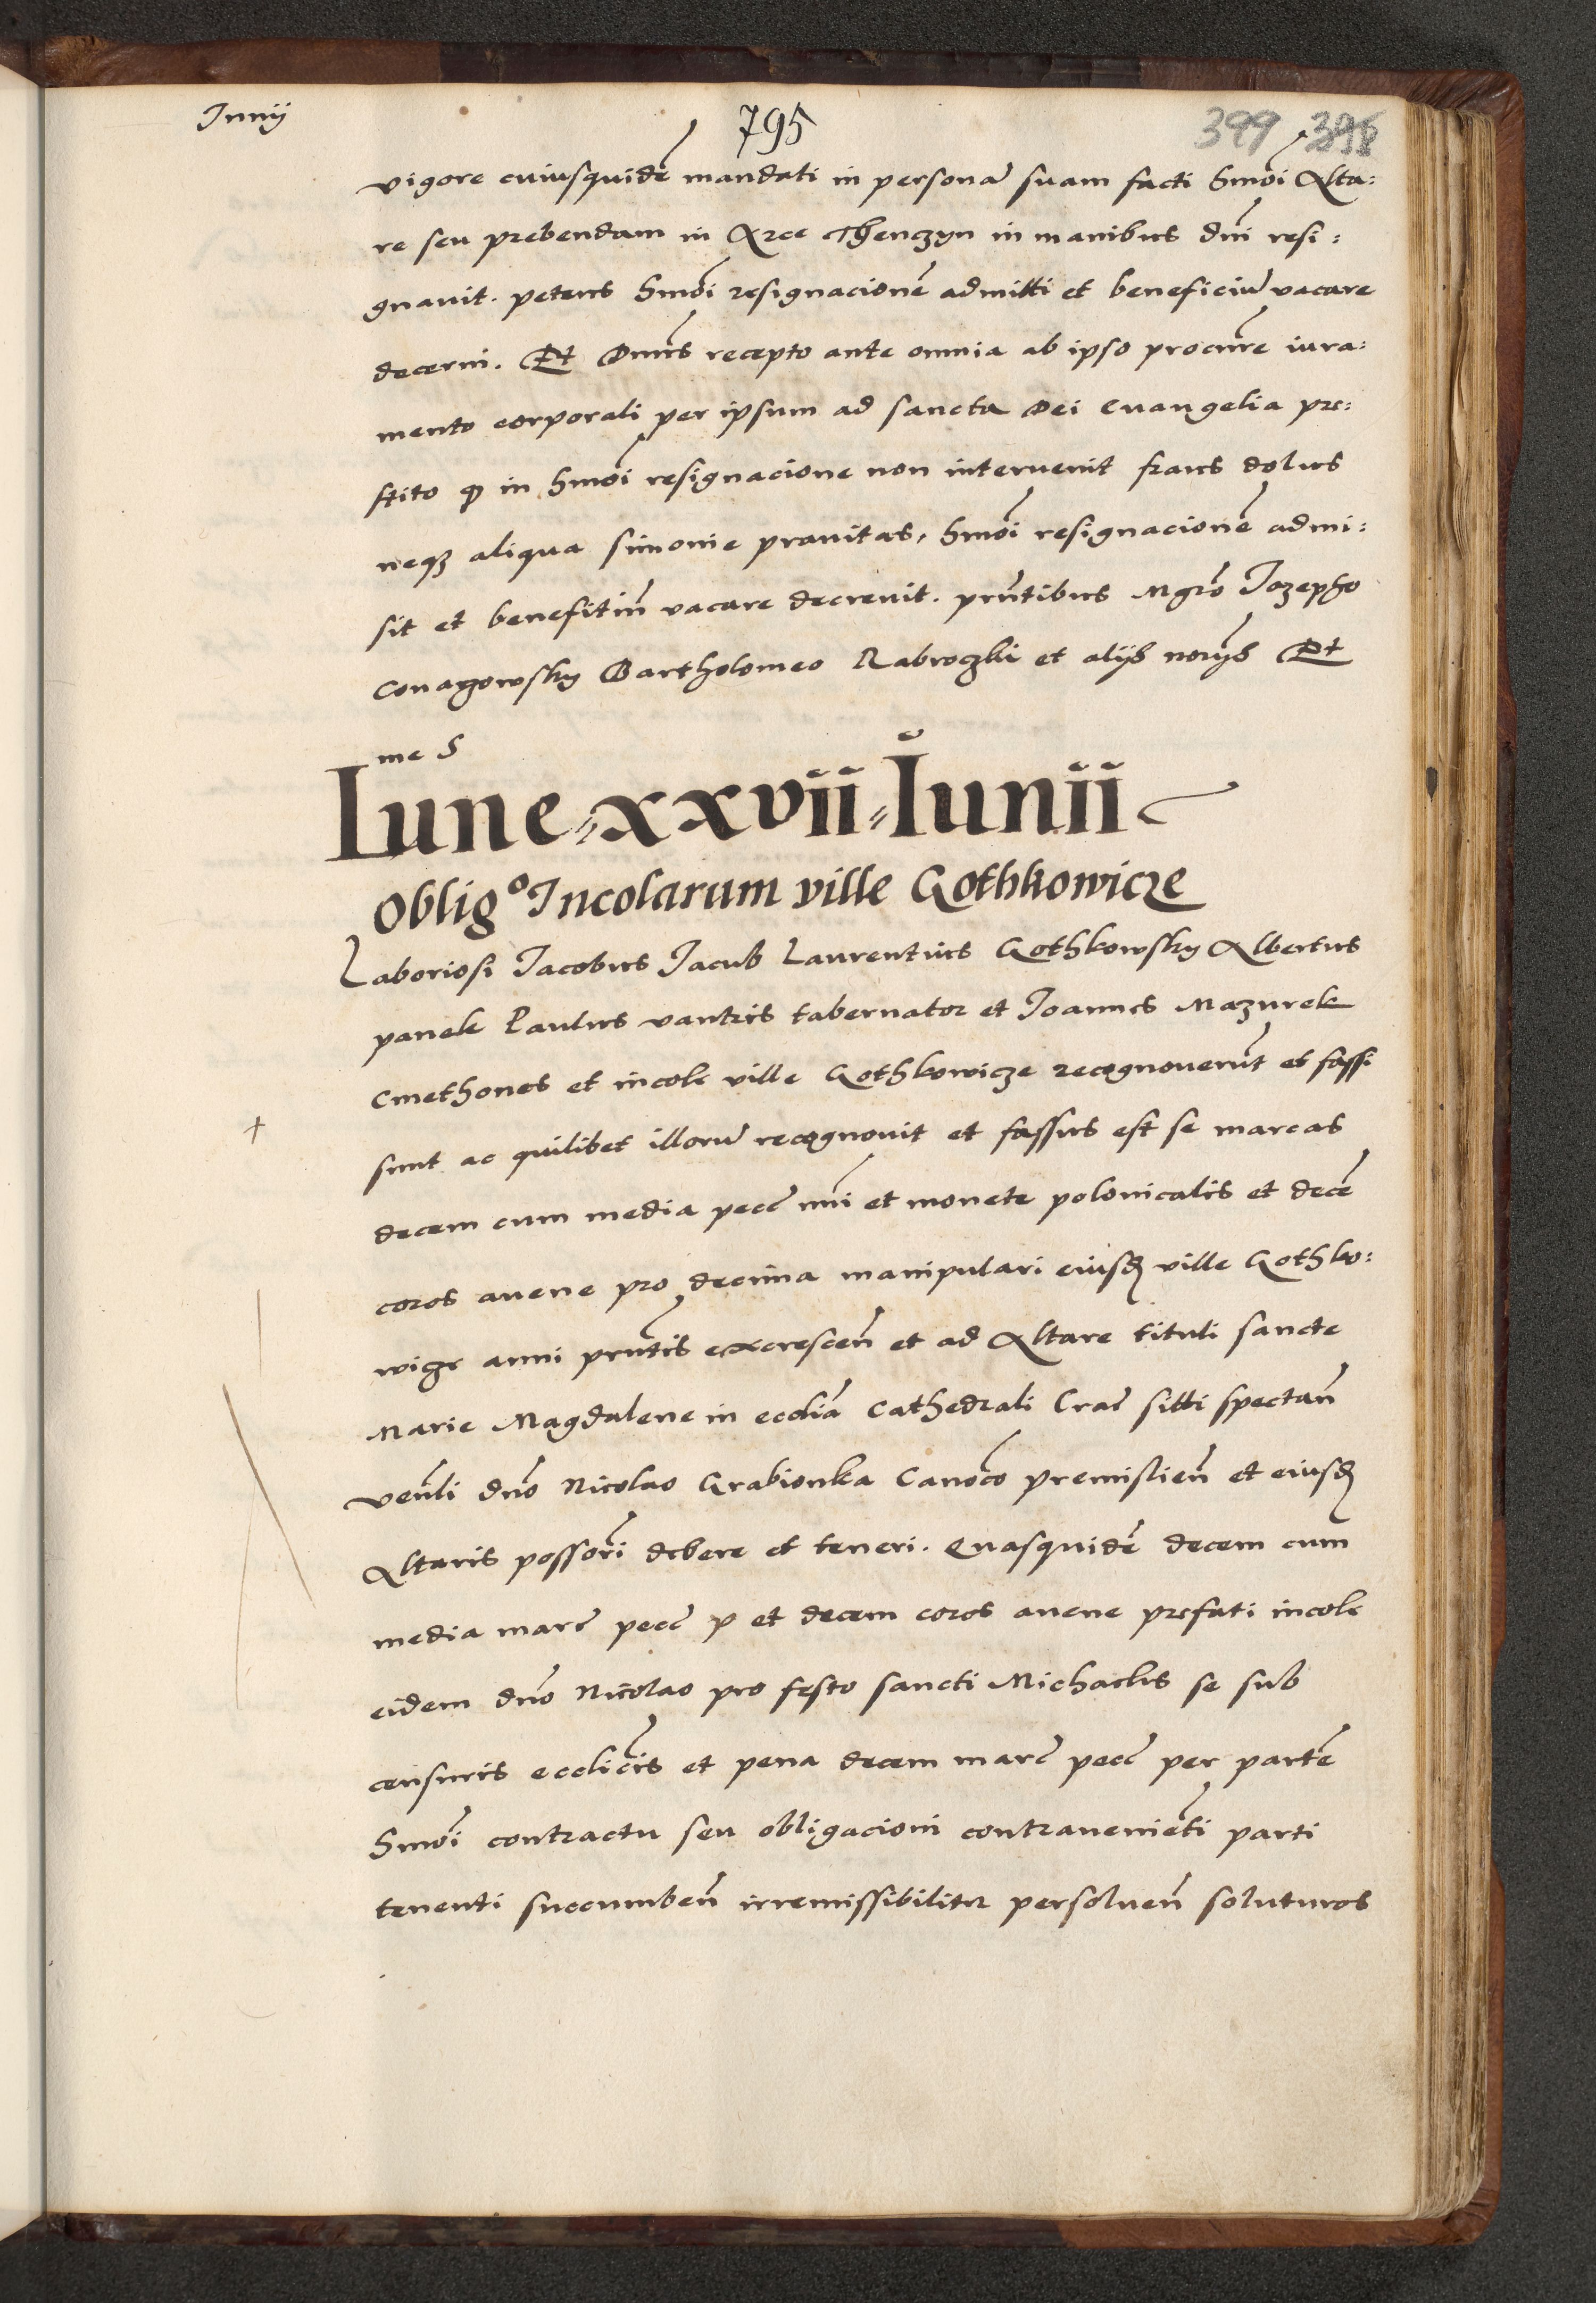 Junij
795
399 398
vigore cuiusquidē mandati in personā suam facti hmōi Alta:
re seu prebendam in Arce Thenczyn in manibus dn̄i resi:
gnavit. petens hmōi resignacionē admitti et beneficiū vacare
decerni. Et Dominus recepto ante omnia ab ipso procure iura:
mento corporali per ipsum ad sancta Dei evangelia pre:
stito ꝙ in hmōi resignacione non intervenit fraus dolus
neqꝫ aliqua simonie pravitas, hmōi resignacionē admi:
sit et benefitiū vacare decrevit. pn̄tibus Mgrō Jozepho
Bartholomeo et alijs notijs Et
me S
Lune xxvii Iunii
Oblig° Incolarum ville Gothkowicze
Laboriosi Jacobus Jacub Laurentius Gothkowsky Albertus
panek Paulus vantris tabernator et Joannes Mazurek
Cmethones et incole ville Gothkowicze recognoverūt et fassi
sunt ac quilibet illorū recognovit et fassus est se marcas
decem cum media pecc̄ nrī et monete polonicalis et decē
coros avene pro decima manipulari eiusdꝫ ville Gothko:
wicze anni pn̄tis excrescen̄ et ad Altare tituli sancte
Marie Magdalene in ecclīa Cathedrali Crac̄ sitti spectan̄
ven̄li dn̄o Nicolao Grabionka Canōco premislien̄ et eiusdꝫ
Altaris possōri debere et teneri. Quasquidē decem cum
media marc̄ pecc̄ p et decem coros avene prefati incole
eidem dn̄o Nicolao pro festo sancti Michaelis se sub
censuris ecclicis et pena decem marc̄ pecc̄ per partē
hmōi contractu seu obligacioni contraveniēti parti
tenenti succumben̄ irremissibiliter persolven̄ soluturos